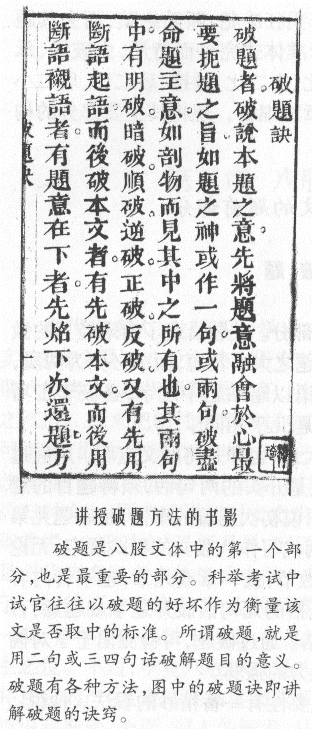 破題訣
破題者破說本題之意先將題意融會於心最
要扼題之旨如題之神或作一句或兩句破盡
命題主意如剖物而見其中之所有也其兩句
中有明破暗破順破逆破正破反破又有先用
斷語起語而後破本文者有先破本文而後用
斷語襯語者有題意在下者先焰下次還題方
破題訣
讲授破题方法的书影
破题是八股文体中的第一个部
分,也是最重要的部分。科举考试中
试官往往以破题的好坏作为衡量该
文是否取中的标准。所谓破题,就是
用二句或三四句话破解题目的意义。
破题有各种方法,图中的破题诀即讲
解破题的诀窍。